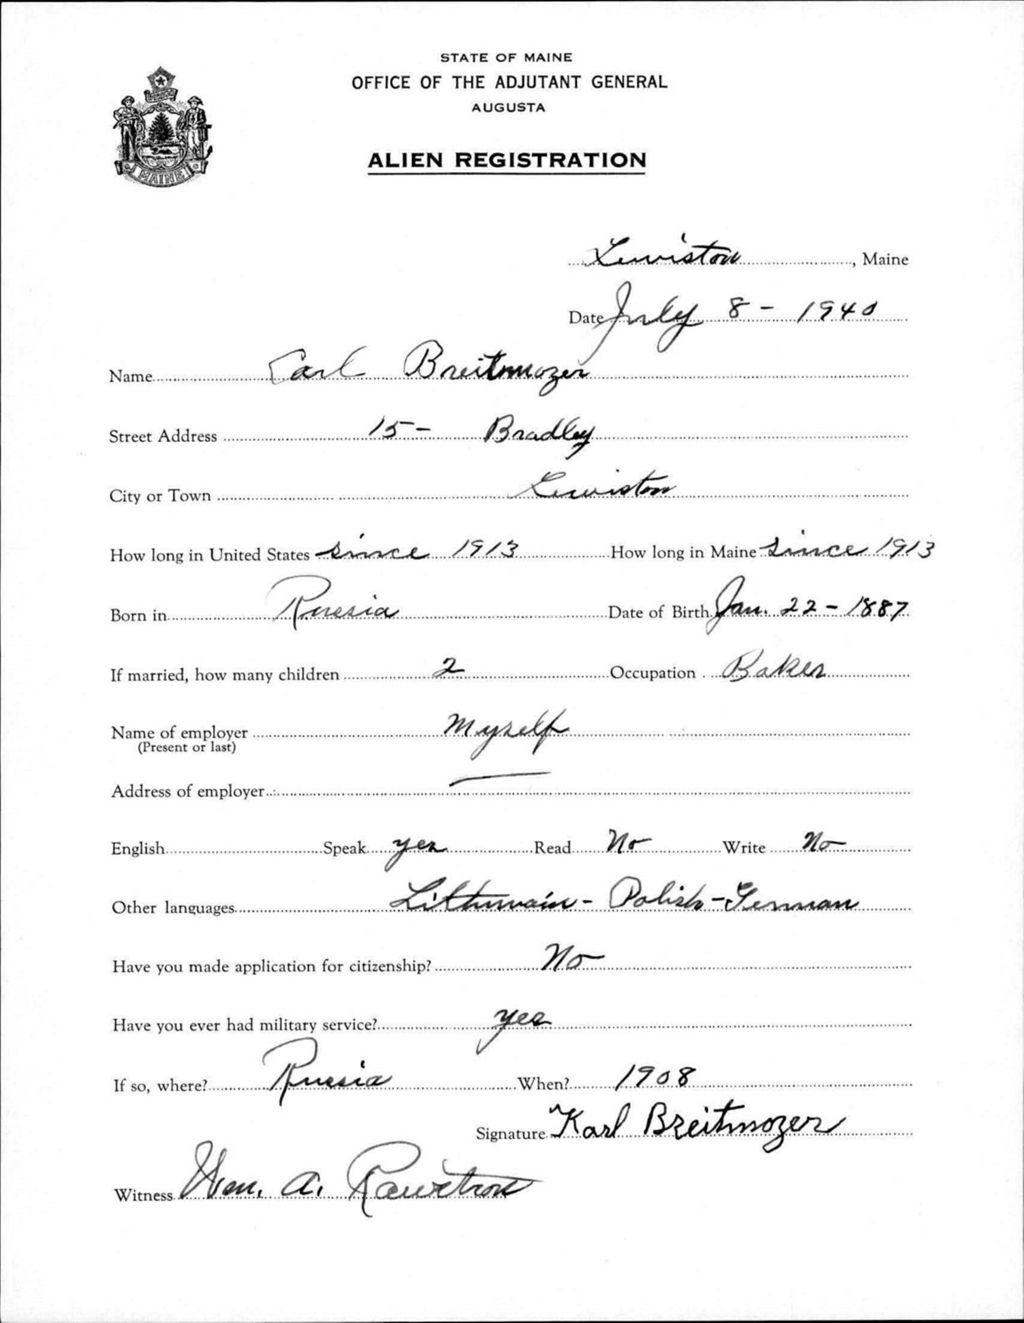 STATE OF MAINE
OFFICE OF THE ADJUTANT GENERAL
AUGUSTA
ALIEN REGISTRATION
MAINE
Lewiston, Maine
Date July 8 - 1940
Name Carl Breitmozer
Street Address 15 - Bradley
City or Town Lewiston
How long in United States since 1913 How long in Maine since 1913
Born in Russia Date of Birth Jan. 22 - 1887
If married, how many children 2 Occupation Baker
Name of employer Myself
(Present or last)
Address of employer —
English Speak yes Read No Write No
Other languages Lithuwain - Polish - German
Have you made application for citizenship? No
Have you ever had military service? yes
If so, where? Russia When? 1908
Signature Karl Breitmozer
Witness Wm. A.